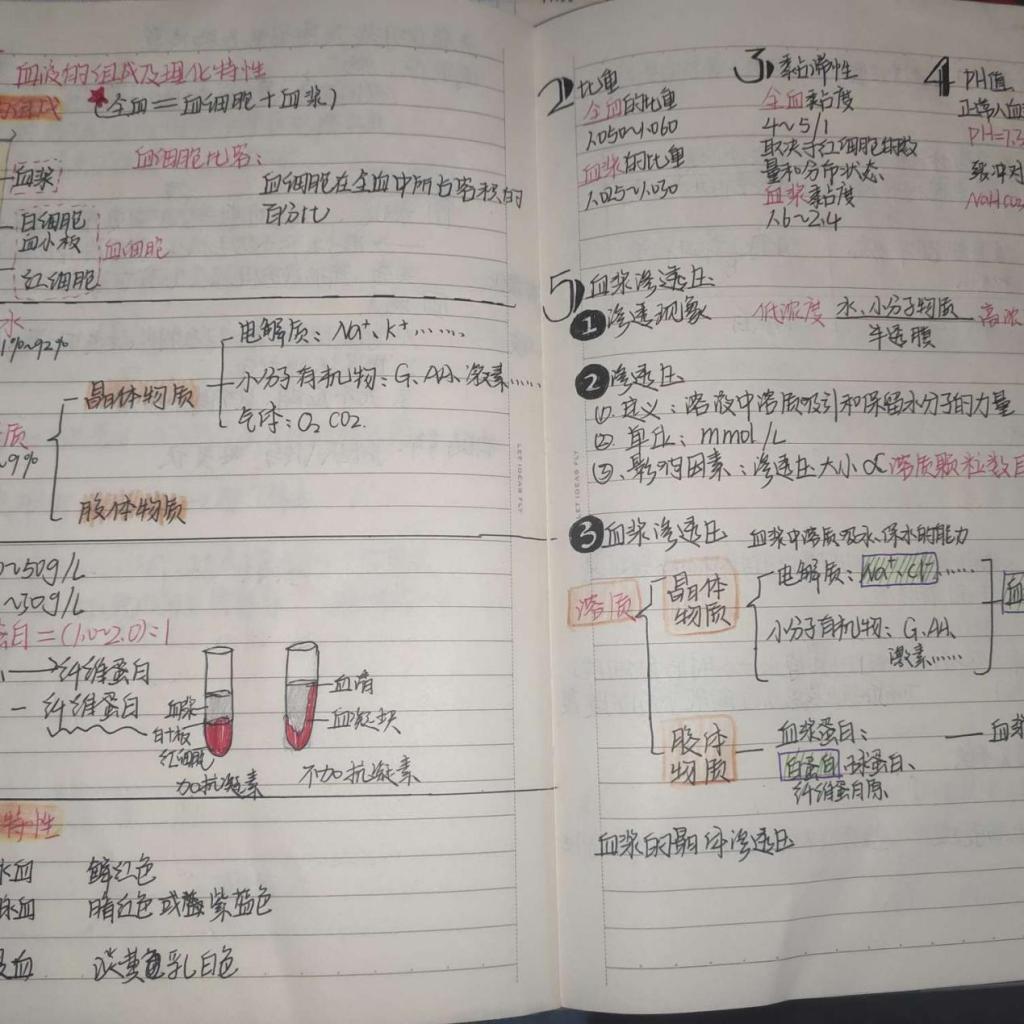 血液的组成及理化特性
(全血=血细胞+血浆)
血细胞比容:
血细胞在全血中所占容积的
百分比
血浆
白细胞
血小板
血细胞
红细胞
水
1%~92%
电解质: Na⁺、K⁺……
晶体物质
小分子有机物: G、AA、激素……
气体: O₂ CO₂.
质
~9%
胶体物质
~50g/L
~30g/L
蛋白=(1.0~2.0):1
→纤维蛋白
- 纤维蛋白
血浆
红细胞
加抗凝素
血清
血凝块
不加抗凝素
特性
血 鲜红色
血 暗红色或 紫蓝色
血 淡黄色乳白色
2) 比重
全血的比重
1.050~1.060
血浆的比重
1.025~1.030
3) 黏滞性
全血黏度
4~5/1
取决于红细胞
量和分布状态
血浆黏度
1.6~2.4
4 PH值
正常人血
PH=7.3
缓冲对
NaHCO₃
5) 血浆渗透压
1 渗透现象 低浓度 水、小分子物质 高浓
半透膜
2 渗透压
(1). 定义: 溶液中溶质吸引和保留水分子的力量
(2) 单位: mmol/L
(3). 影响因素: 渗透压大小∝溶质颗粒数目
3 血浆渗透压 血浆中溶质吸水、保水的能力
溶质
晶体
物质
电解质: Na⁺、Cl⁻……
小分子有机物: G、AA、
激素……
血
胶体
物质
血浆蛋白:
白蛋白、球蛋白、
纤维蛋白原
— 血浆
血浆的晶体渗透压
LET IDEAS FLY
LET IDEAS FLY